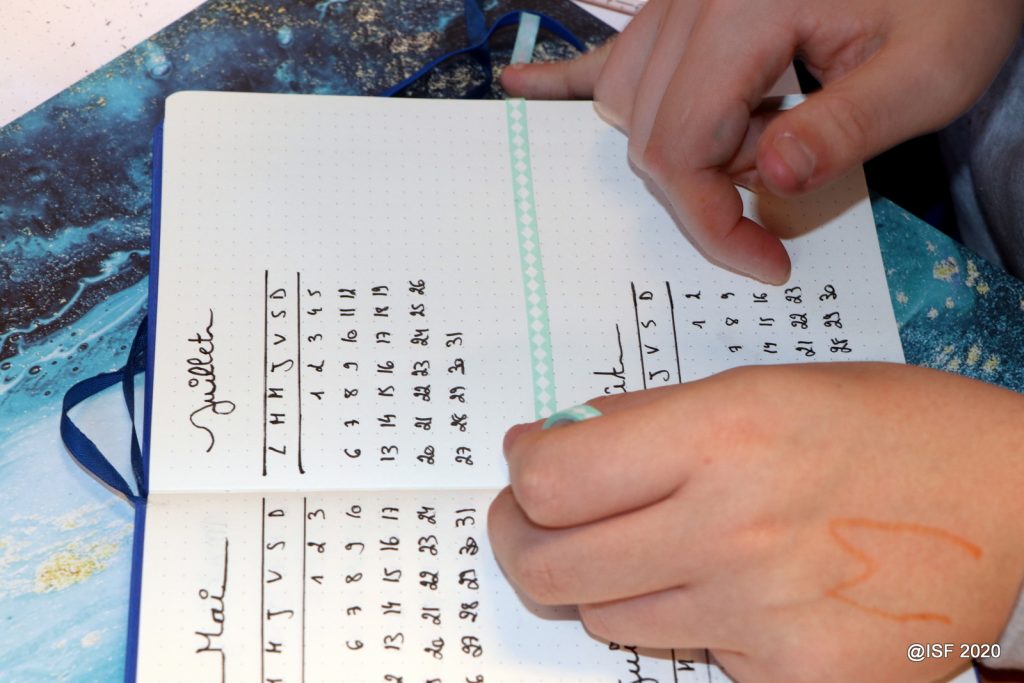 Mai
M J V S D
1 2 3
6 7 8 9 10
13 14 15 16 17
20 21 22 23 24
27 28 29 30 31
Juillet
L M M J V S D
1 2 3 4 5
6 7 8 9 10 11 12
13 14 15 16 17 18 19
20 21 22 23 24 25 26
27 28 29 30 31
J V S D
1 2
7 8 9
14 15 16
21 22 23
28 29 30
@ISF 2020